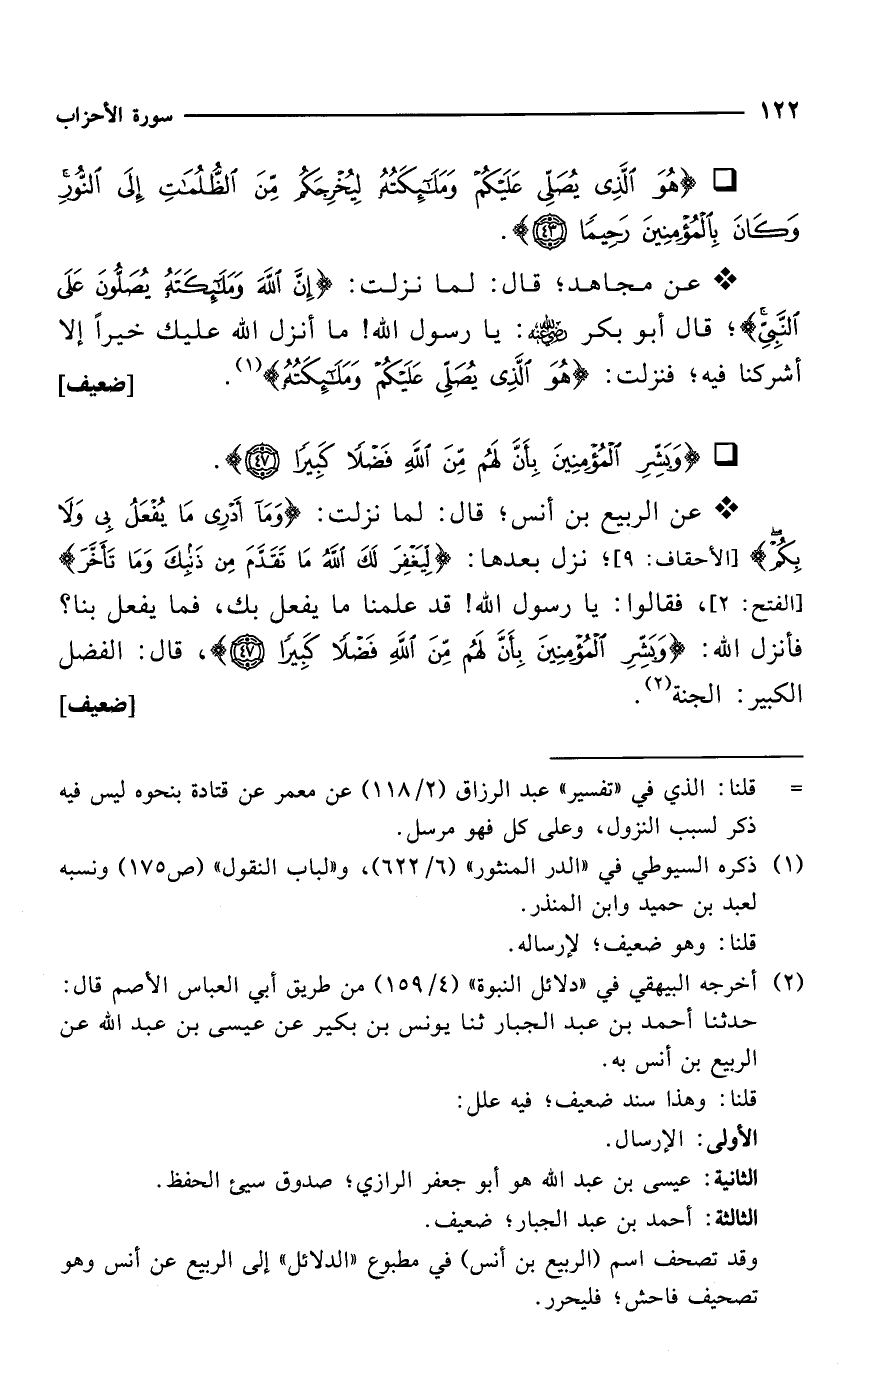 ١٢٢ سورة الأحزاب
❑ ﴿هُوَ ٱلَّذِى يُصَلِّى عَلَيْكُمْ وَمَلَـٰٓئِكَتُهُۥ لِيُخْرِجَكُم مِّنَ ٱلظُّلُمَـٰتِ إِلَى ٱلنُّورِۚ
وَكَانَ بِٱلْمُؤْمِنِينَ رَحِيمًا ٤٣﴾.
❖ عن مجاهد؛ قال: لما نزلت: ﴿إِنَّ ٱللَّهَ وَمَلَـٰٓئِكَتَهُۥ يُصَلُّونَ عَلَى
ٱلنَّبِىِّۚ﴾؛ قال أبو بكر رضي الله عنه: يا رسول الله! ما أنزل الله عليك خيراً إلا
أشركنا فيه؛ فنزلت: ﴿هُوَ ٱلَّذِى يُصَلِّى عَلَيْكُمْ وَمَلَـٰٓئِكَتُهُۥ﴾(١). [ضعيف]
❑ ﴿وَبَشِّرِ ٱلْمُؤْمِنِينَ بِأَنَّ لَهُم مِّنَ ٱللَّهِ فَضْلًا كَبِيرًا ٤٧﴾.
❖ عن الربيع بن أنس؛ قال: لما نزلت: ﴿وَمَآ أَدْرِى مَا يُفْعَلُ بِى وَلَا
بِكُمْۖ﴾ [الأحقاف: ٩]؛ نزل بعدها: ﴿لِّيَغْفِرَ لَكَ ٱللَّهُ مَا تَقَدَّمَ مِن ذَنۢبِكَ وَمَا تَأَخَّرَ﴾
[الفتح: ٢]، فقالوا: يا رسول الله! قد علمنا ما يفعل بك، فما يفعل بنا؟
فأنزل الله: ﴿وَبَشِّرِ ٱلْمُؤْمِنِينَ بِأَنَّ لَهُم مِّنَ ٱللَّهِ فَضْلًا كَبِيرًا ٤٧﴾، قال: الفضل
الكبير: الجنة(٢). [ضعيف]
= قلنا: الذي في «تفسير» عبد الرزاق (١١٨/٢) عن معمر عن قتادة بنحوه ليس فيه
ذكر لسبب النزول، وعلى كل فهو مرسل.
(١) ذكره السيوطي في «الدر المنثور» (٦٢٢/٦)، و«لباب النقول» (ص١٧٥) ونسبه
لعبد بن حميد وابن المنذر.
قلنا: وهو ضعيف؛ لإرساله.
(٢) أخرجه البيهقي في «دلائل النبوة» (١٥٩/٤) من طريق أبي العباس الأصم قال:
حدثنا أحمد بن عبد الجبار ثنا يونس بن بكير عن عيسى بن عبد الله عن
الربيع بن أنس به.
قلنا: وهذا سند ضعيف؛ فيه علل:
الأولى: الإرسال.
الثانية: عيسى بن عبد الله هو أبو جعفر الرازي؛ صدوق سيئ الحفظ.
الثالثة: أحمد بن عبد الجبار؛ ضعيف.
وقد تصحف اسم (الربيع بن أنس) في مطبوع «الدلائل» إلى الربيع عن أنس وهو
تصحيف فاحش؛ فليحرر.